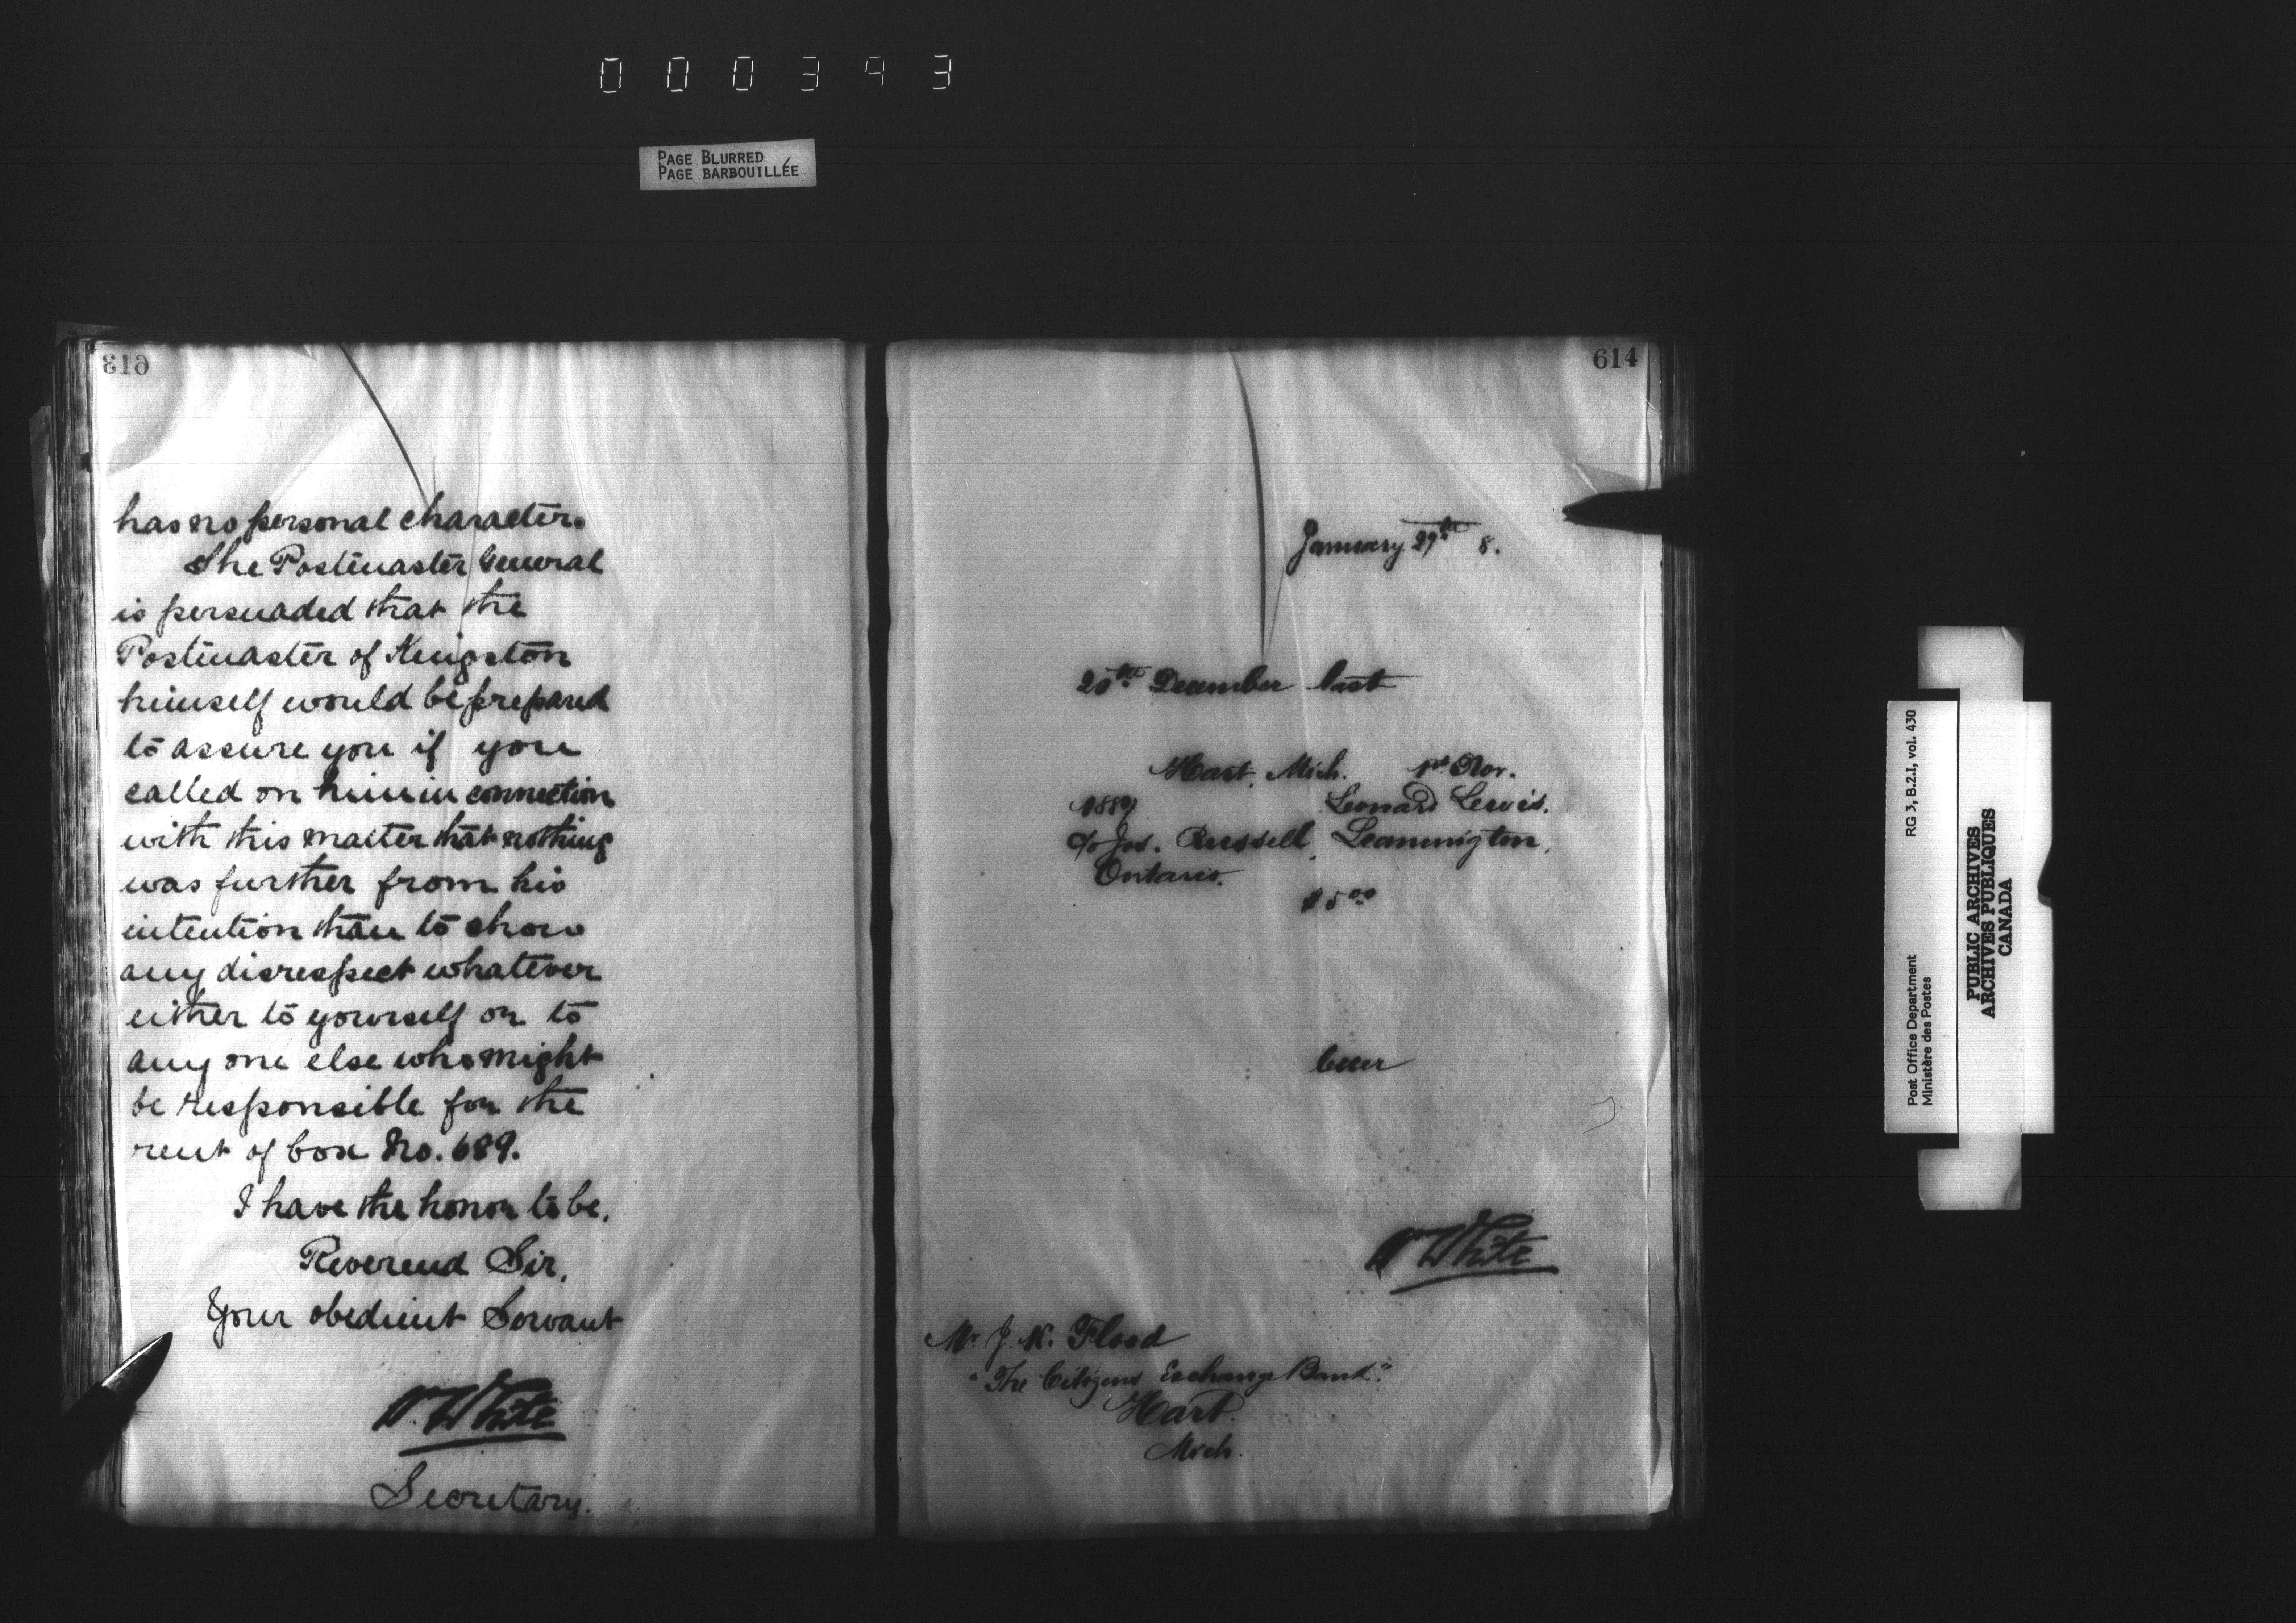 000393
PAGE BLURRED
PAGE BARBOUILLÉE
613
has no personal character.
The Postmaster General
is persuaded that the
Postmaster of Kingston
himself would be prepared
to assure you if you
called on him in connection
with this matter that nothing
was further from his
intention than to show
any disrespect whatever
either to yourself or to
any one else who might
be responsible for the
rent of box No. 689.
I have the honor to be,
Reverend Sir,
Your obedient Servant
W. White
Secretary.
614
January 29th 8.
20th December last
Hart, Mich. 1st Nov.
1889 Leonard Lewis.
c/o Jos. Russell, Leamington,
Ontario.
$5 00
W White
Mr J. K. Flood
"The Citizens Exchange Bank"
Hart.
Mich.
Post Office Department RG 3, B.2.I, vol. 430
Ministère des Postes
PUBLIC ARCHIVES
ARCHIVES PUBLIQUES
CANADA